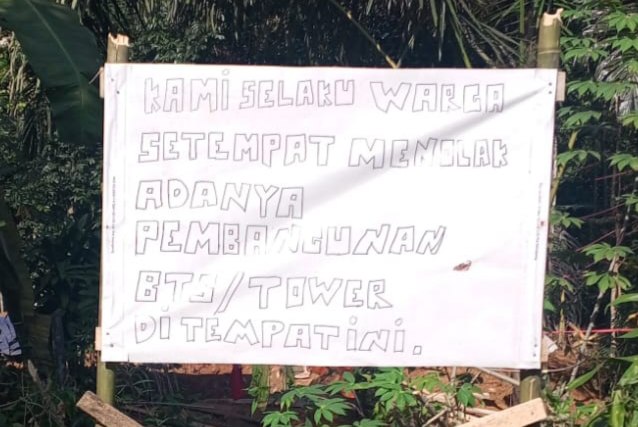 KAMI SELAKU WARGA
SETEMPAT MENOLAK
ADANYA
PEMBANGUNAN
BTS/TOWER
DI TEMPAT INI.